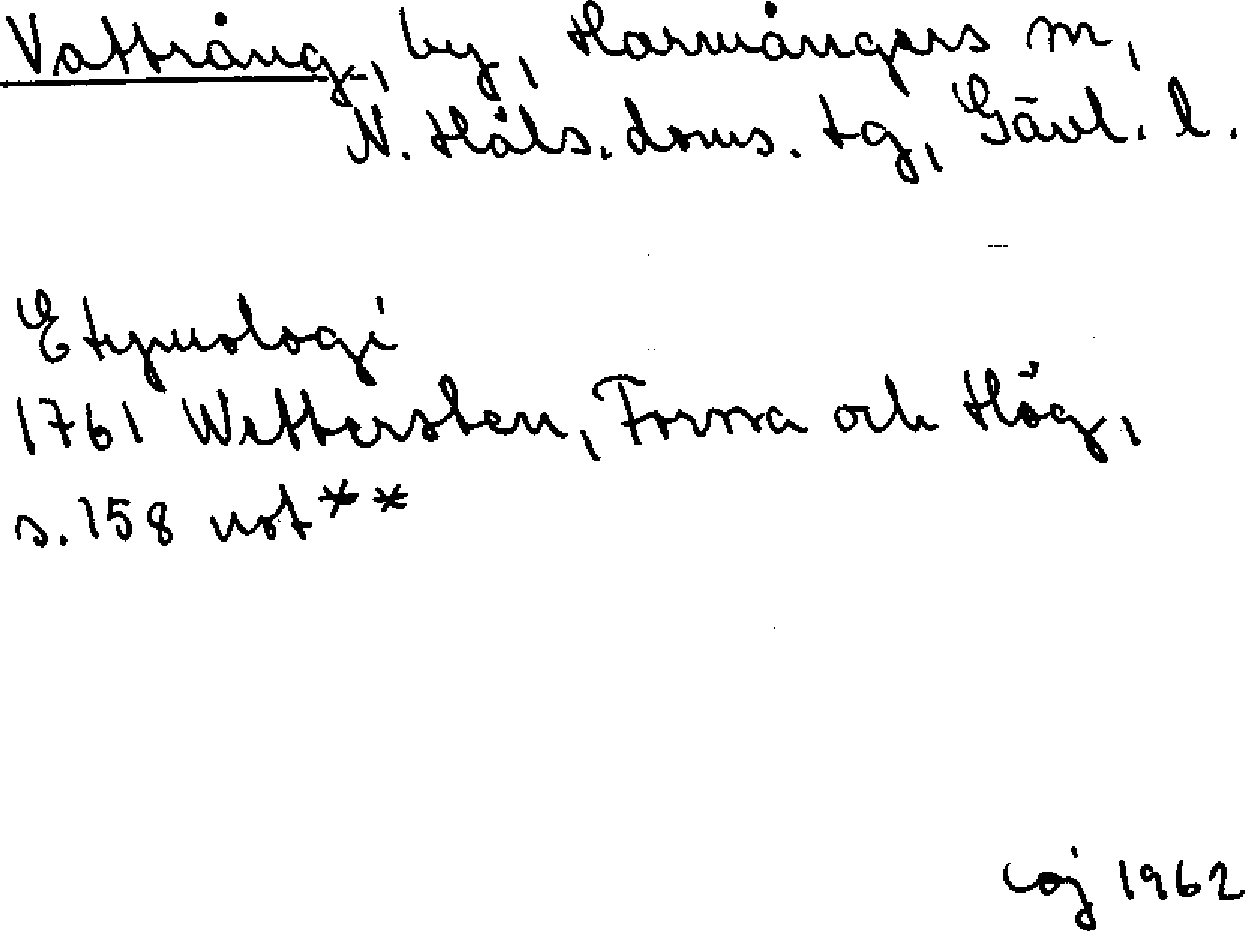 Vattrång, by, Harmångers sn,
N. Häls. doms. tg, Gävl. l.
Etymologi
1761 Wettersten, Forssa och Hög,
s. 158 not **
1962